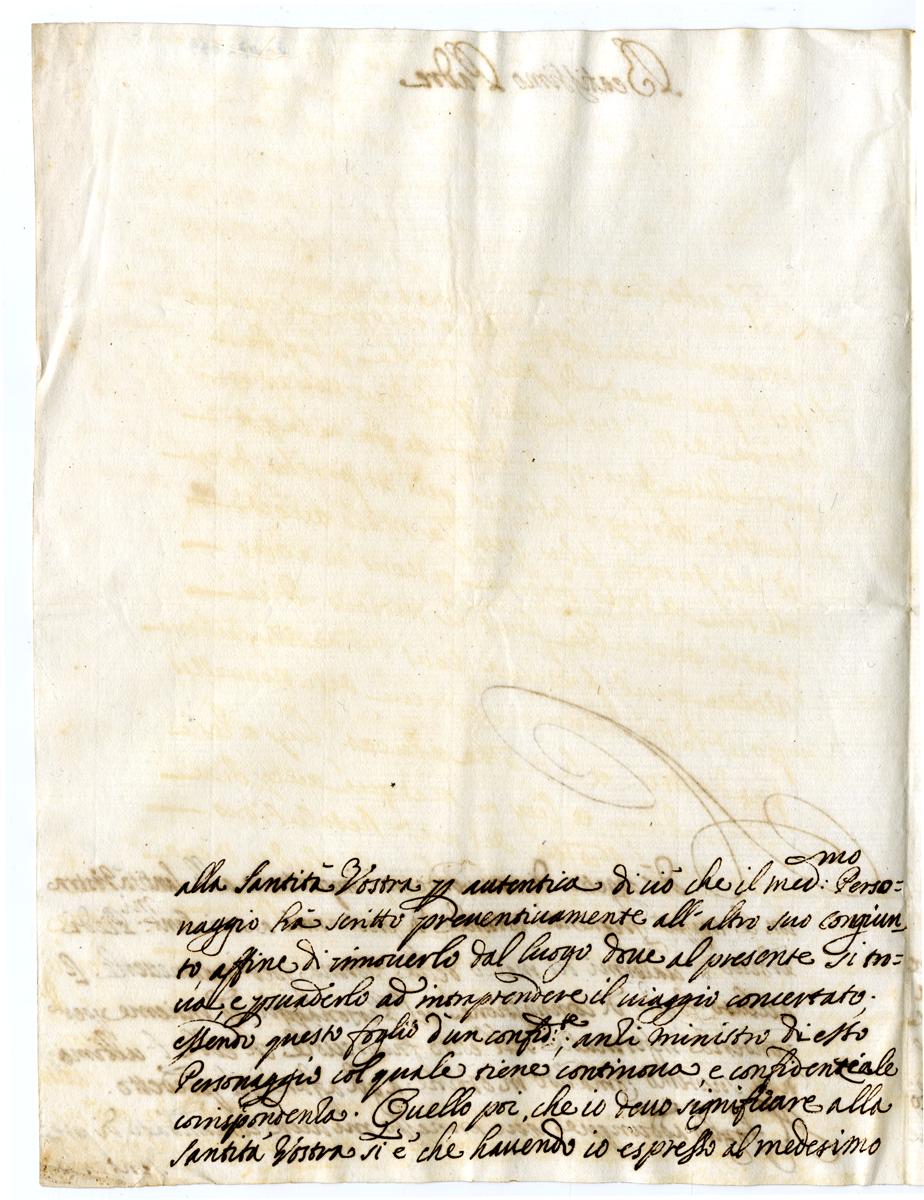 alla Santità Vostra p autentica di ciò che il med:mo Perso=
naggio hà scritto preventivamente all'altro suo congiun
to affine di rimoverlo dal luogo dove al presente si tro=
va, e psuaderlo ad intraprendere il viaggio concertato.
essendo questo foglio d'un confid:te, anzi ministro di esso
Personaggio col quale tiene continova, e confidentiale
corrispondenza. Quello poi, che io devo significare alla
Santità Vostra si è che havendo io espresso al medesimo